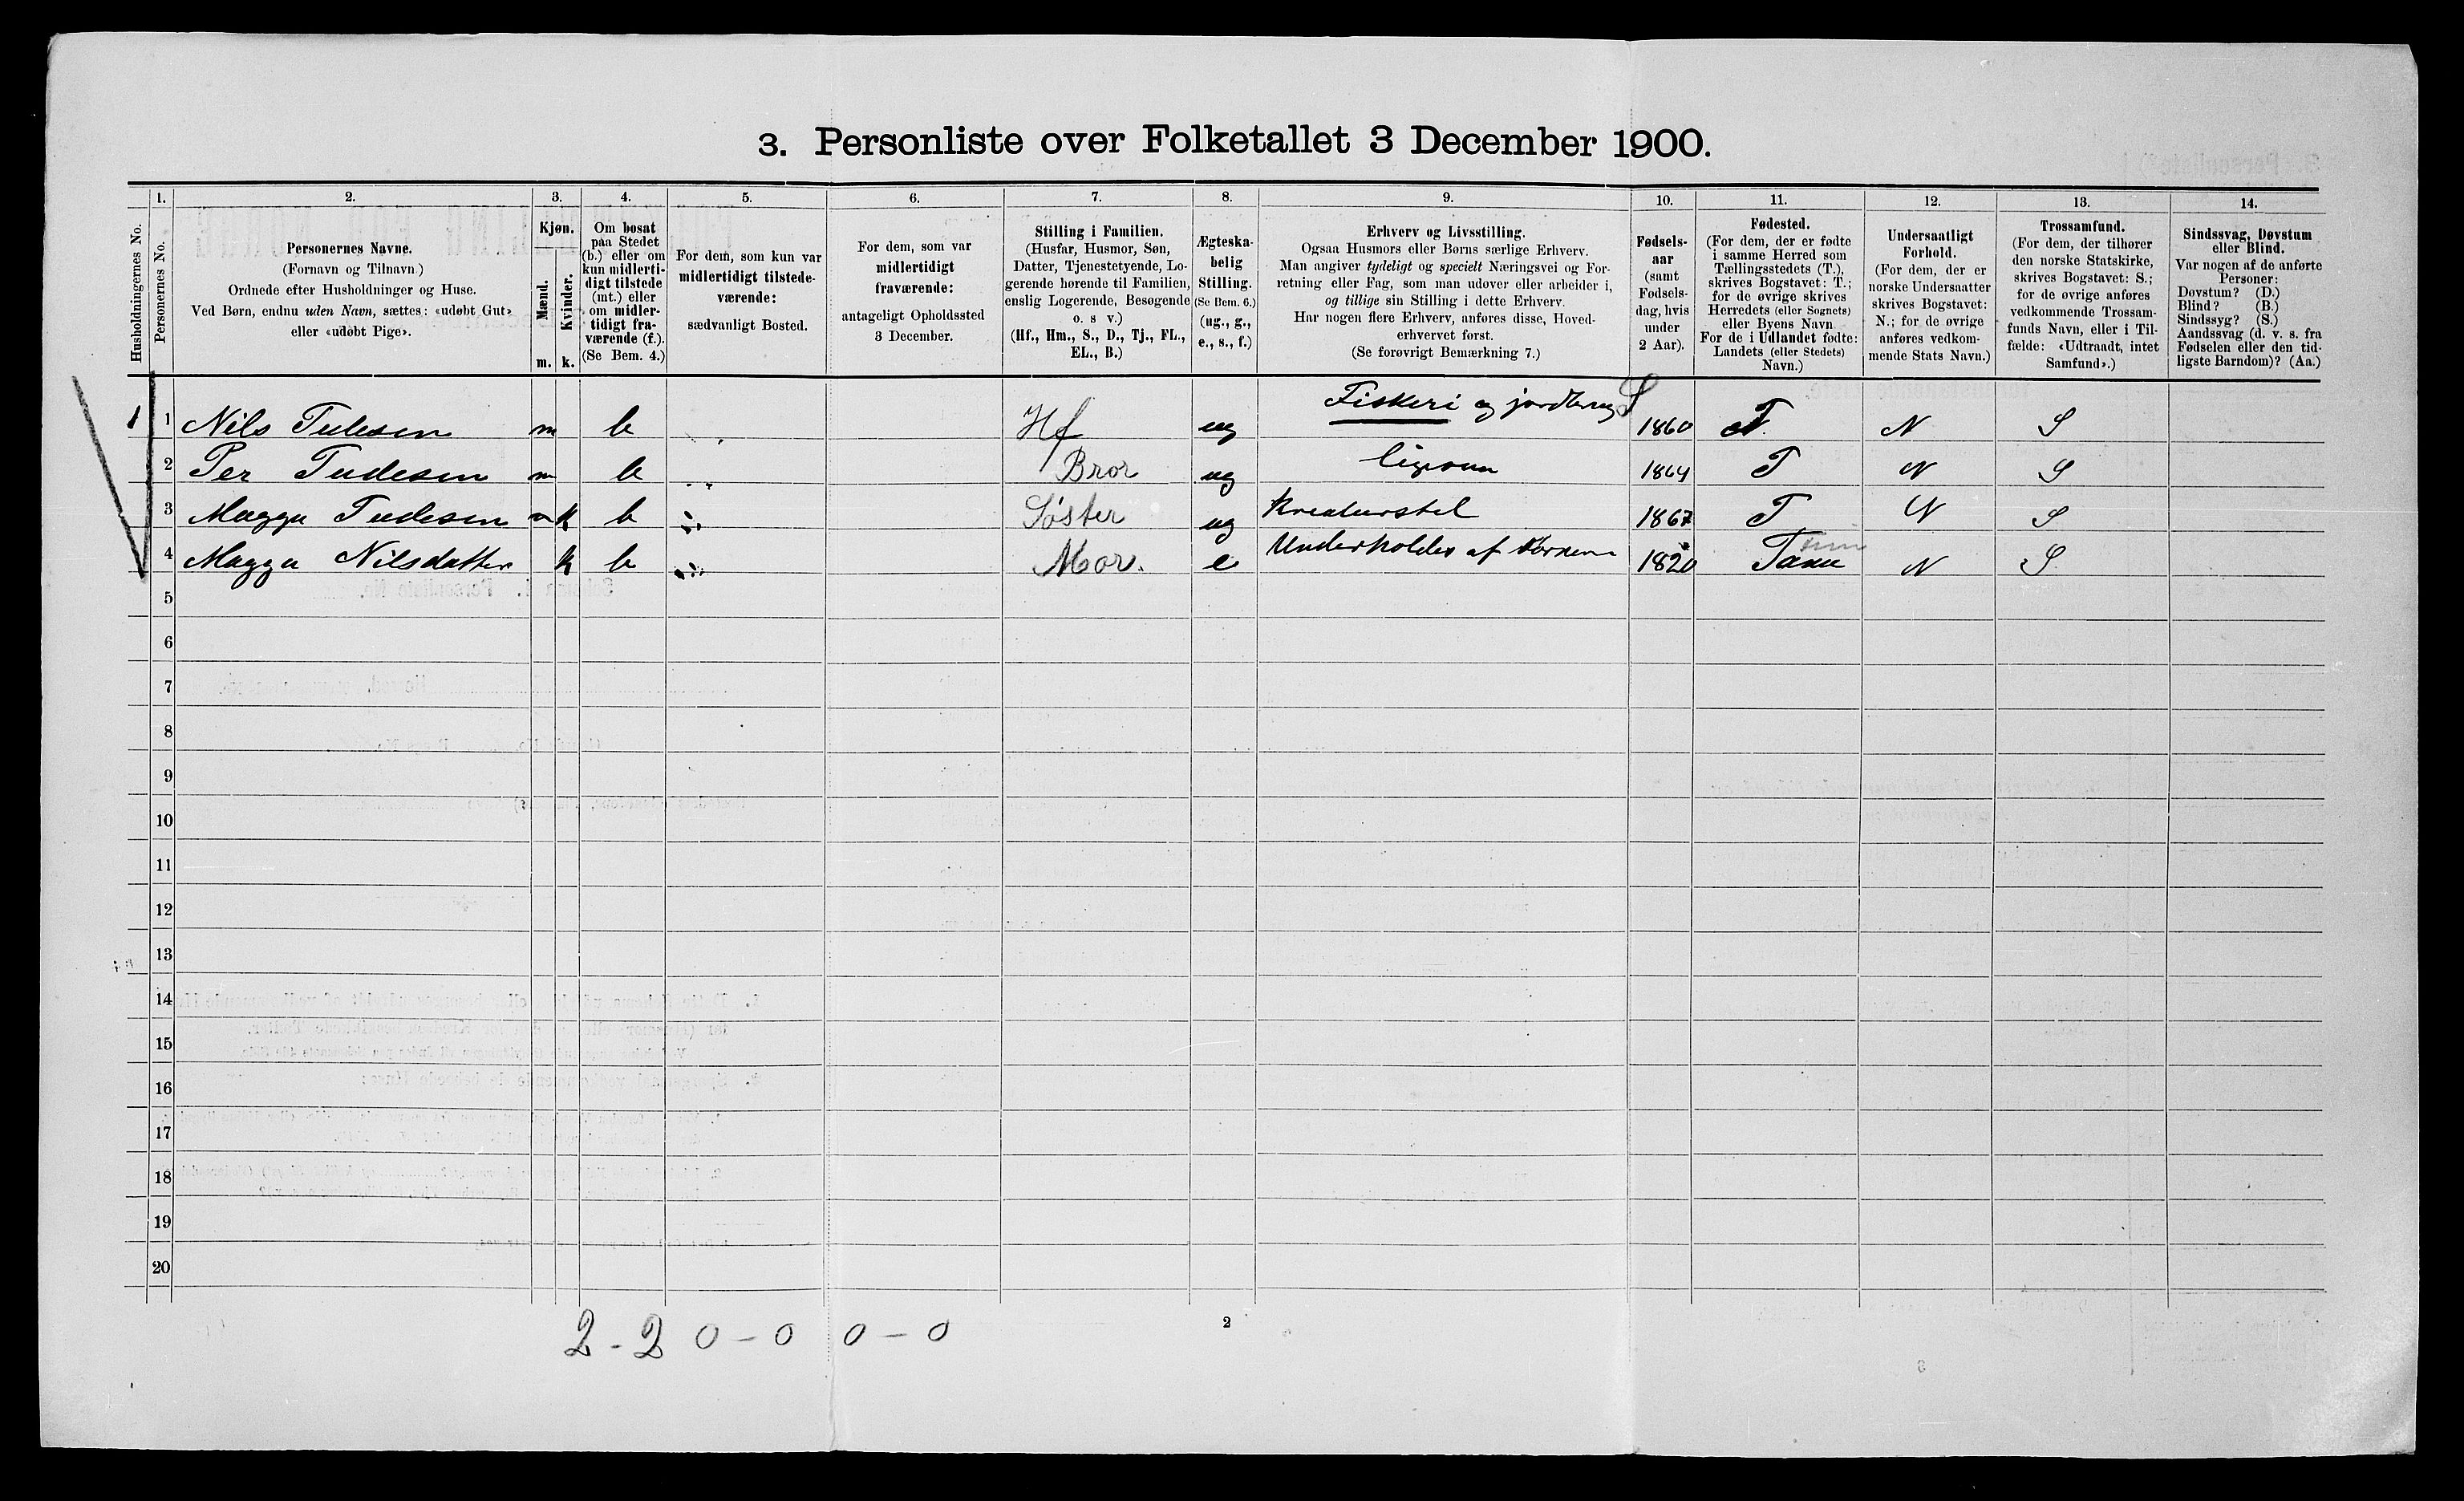 3. Personliste over Folketallet 3 December 1900.
1. 2. 3. 4. 5. 6. 7. 8. 9. 10. 11. 12. 13. 14.
Husholdningernes No.
Personernes No.
Personernes Navne.
(Fornavn og Tilnavn.)
Ordnede efter Husholdninger og Huse.
Ved Børn, endnu uden Navn, sættes: «udøbt Gut»
eller «udøbt Pige».
Kjøn.
Mænd.
Kvinder.
m. k.
Om bosat
paa Stedet
(b.) eller om
kun midlerti-
digt tilstede
(mt.) eller
om midler-
tidigt fra-
værende (f.).
(Se Bem. 4.)
For dem, som kun var
midlertidigt tilstede-
værende:
sædvanligt Bosted.
For dem, som var
midlertidigt
fraværende:
antageligt Opholdssted
3 December.
Stilling i Familien.
(Husfar, Husmor, Søn,
Datter, Tjenestetyende, Lo-
gerende hørende til Familien,
enslig Logerende, Besøgende
o. s. v.)
(Hf., Hm., S., D., Tj., FL.,
EL., B.)
Ægteska-
belig
Stilling.
(Se Bem. 6.)
(ug., g.,
e., s., f.)
Erhverv og Livsstilling.
Ogsaa Husmors eller Børns særlige Erhverv.
Man angiver tydeligt og specielt Næringsvei og For-
retning eller Fag, som man udøver eller arbeider i,
og tillige sin Stilling i dette Erhverv.
Har nogen flere Erhverv, anføres disse, Hoved-
erhvervet først.
(Se forøvrigt Bemærkning 7.)
Fødsels-
aar
(samt
Fødsels-
dag, hvis
under
2 Aar).
Fødested.
(For dem, der er fødte
i samme Herred som
Tællingsstedets (T.),
skrives Bogstavet: T.;
for de øvrige skrives
Herredets (eller Sognets)
eller Byens Navn.
For de i Udlandet fødte:
Landets (eller Stedets)
Navn.)
Undersaatligt
Forhold.
(For dem, der er
norske Undersaatter
skrives Bogstavet:
N.; for de øvrige
anføres vedkom-
mende Stats Navn.)
Trossamfund.
(For dem, der tilhører
den norske Statskirke,
skrives Bogstavet: S.;
for de øvrige anføres
vedkommende Trossam-
funds Navn, eller i Til-
fælde: «Udtraadt, intet
Samfund».)
Sindssvag, Døvstum
eller Blind.
Var nogen af de anførte
Personer:
Døvstum? (D.)
Blind? (B.)
Sindssyg? (S.)
Aandssvag (d. v. s. fra
Fødselen eller den tid-
ligste Barndom)? (Aa.)
1 1 Nils Tudesen m b Hf ug Fiskeri og jordbrug S 1860 T N S
2 Per Tudesen m b Bror ug ligesom 1864 T N S
3 Magga Tudesen k b Søster ug Kreaturstel 1867 T N S
4 Magga Nilsdatter k b Mor. e Underholdes af 1820 Tana N S
5
6
7
8
9
10
11
12
13
14
15
16
17
18
19
20
2 - 2 0 - 0 0 - 0
2